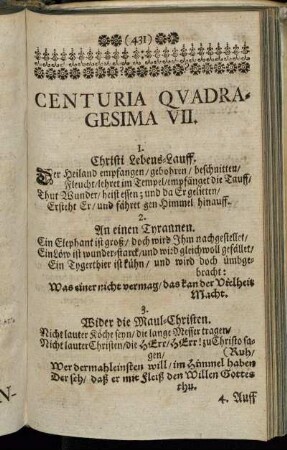 (431)
CENTURIA QVADRA-
GESIMA VII.
1.
Christi Lebens-Lauff.
Der Heiland empfangen / gebohren / beschnitten /
Fleucht / lehret im Tempel / empfänget die Tauff /
Thut Wunder / heist essen; und da Er gelitten /
Ersteht Er / und fähret gen Himmel hinauff.
2.
An einen Tyrannen.
Ein Elephant ist groß / doch wird Ihm nachgestellet /
Ein Löw ist wunder-starck / und wird gleichwoll gefället /
Ein Tygerthier ist kühn / und wird doch ümbge-
bracht:
Was einer nicht vermag / das kan der Vielheit
Macht.
3.
Wider die Maul-Christen.
Nicht lauter Köche seyn / die lange Messer tragen /
Nicht lauter Christen / die HErr / HErr! zu Christo sa-
gen / (Ruh /
Wer dermahleinsten will / im Himmel haben
Der seh / daß er mit Fleiß den Willen Gottes
thu.
4. Auff
N-